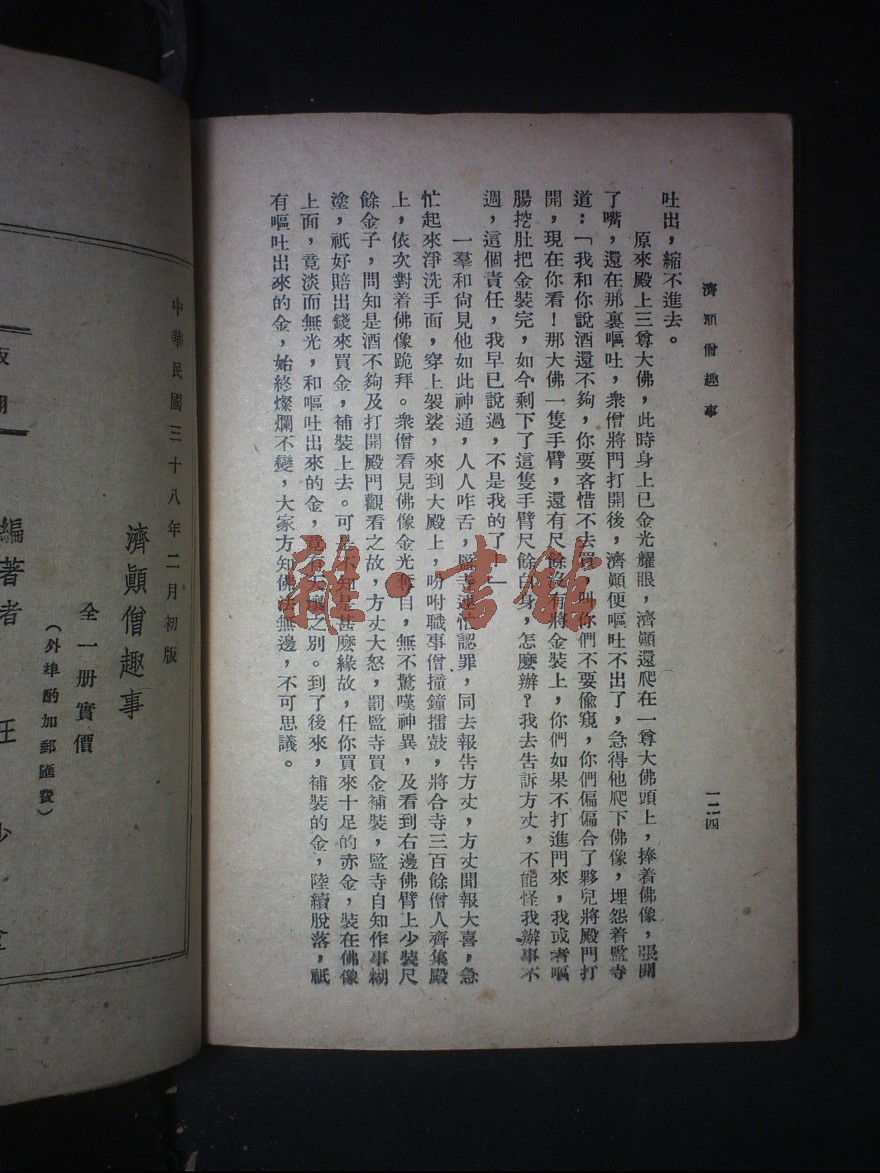 濟顚僧趣事
一二四
吐出，縮不進去。
原來殿上三尊大佛，此時身上已金光耀眼，濟顚還爬在一尊大佛頭上，捧着佛像，張開
了嘴，還在那裏嘔吐，衆僧將門打開後，濟顚便嘔吐不出了，急得他爬下佛像，埋怨着監寺
道：「我和你說酒還不夠，你要吝惜不去買，叫你們不要偸窺，你們偏偏合了夥兒將殿門打
開，現在你看！那大佛一隻手臂，還有尺餘沒有將金裝上，你們如果不打進門來，我或者嘔
腸挖肚把金裝完，如今剩下了這隻手臂尺餘白身，怎麼辦？我去告訴方丈，不能怪我辦事不
週，這個責任，我早已說過，不是我的了——」
一羣和尙見他如此神通，人人咋舌，監寺連忙認罪，同去報告方丈，方丈聞報大喜，急
忙起來淨洗手面，穿上袈裟，來到大殿上，吩咐職事僧撞鐘擂鼓，將合寺三百餘僧人齊集殿
上，依次對着佛像跪拜。衆僧看見佛像金光奪目，無不驚嘆神異，及看到右邊佛臂上少裝尺
餘金子，問知是酒不夠及打開殿門觀看之故，方丈大怒，罰監寺買金補裝，監寺自知作事糊
塗，祇好賠出錢來買金，補裝上去。可是不知是甚麼緣故，任你買來十足的赤金，裝在佛像
上面，竟淡而無光，和嘔吐出來的金，竟有天壤之別。到了後來，補裝的金，陸續脫落，祇
有嘔吐出來的金，始終燦爛不變，大家方知佛法無邊，不可思議。
雜·書館
中華民國三十八年二月初版
濟顚僧趣事
全一册實價
（外埠酌加郵匯費）
編著者 汪